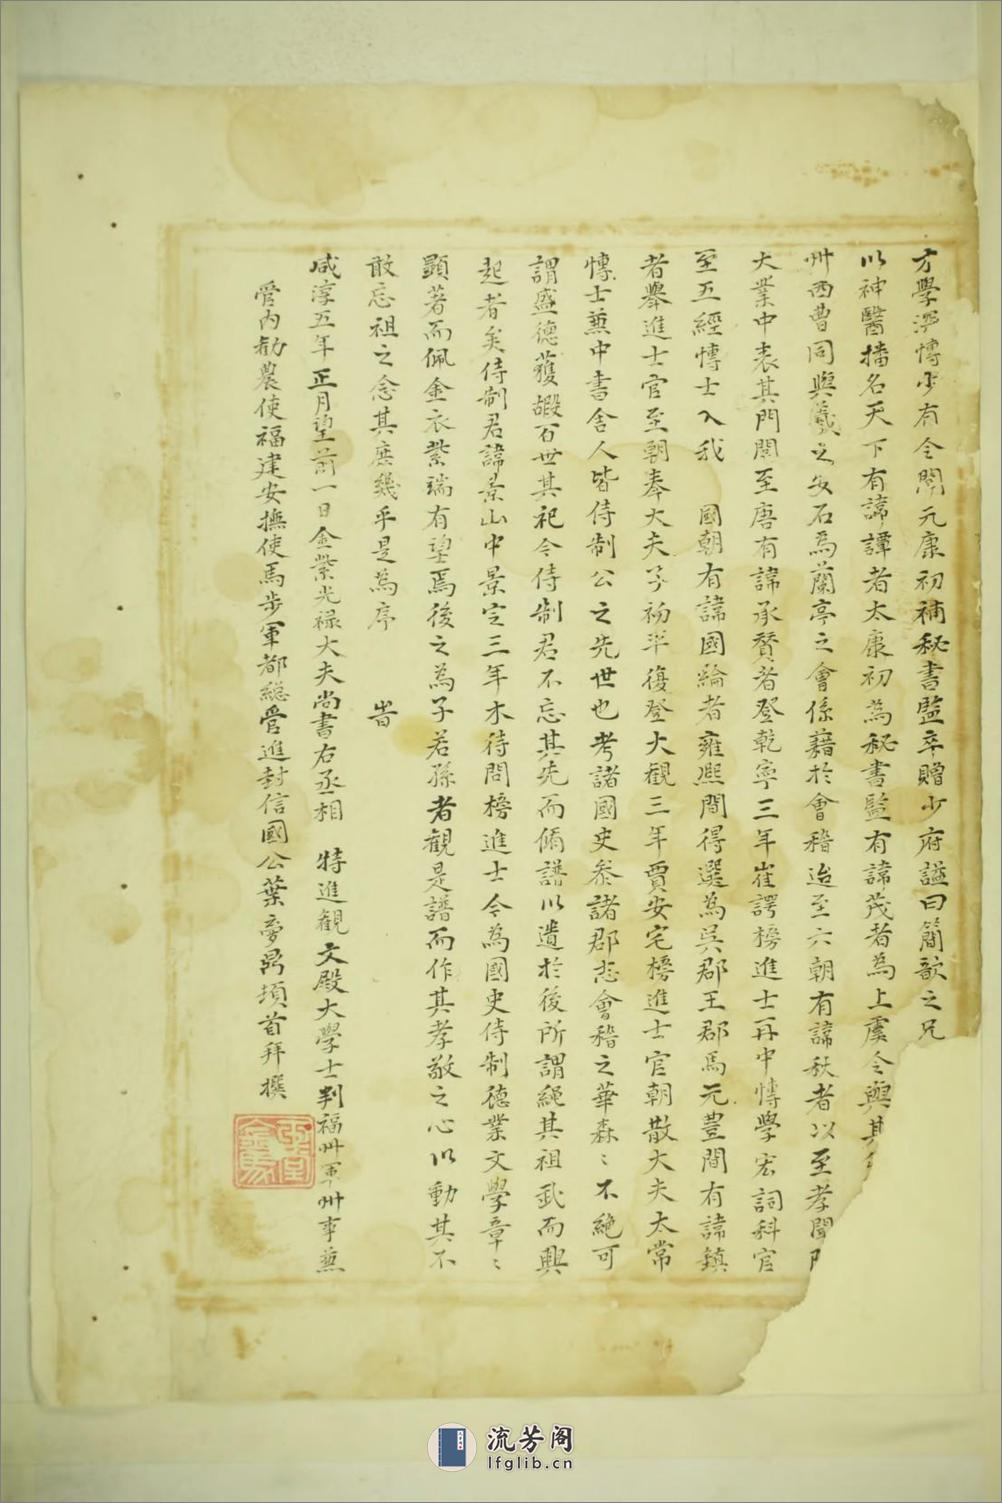 方學渾博少有令聞元康初補秘書監卒贈少府謚曰簡歆之兄
以神醫播名天下有諱譚者太康初為秘書監有諱茂者為上虞令與其
州西曹同與羲之安石為蘭亭之會係藉於會稽迨至六朝有諱秋者以至孝聞
大業中表其門閭至唐有諱承贊者登乾寧三年崔諤榜進士再中博學宏詞科官
至五經博士入我 國朝有諱國綸者雍熙間得選為吳郡王郡馬元豊間有諱鎮
者舉進士官至朝奉大夫子初平復登大觀三年賈安宅榜進士官朝散大夫太常
博士兼中書舍人皆侍制公之先世也考諸國史參諸郡志會稽之華森〻不絶可
謂盛德獲嘏百世其祀今侍制君不忘其先而脩譜以遺於後所謂繩其祖武而興
起者矣侍制君諱景山中景定三年木待問榜進士今為國史侍制德業文學章〻
顯著而佩金衣紫端有望焉後之為子若孫者觀是譜而作其孝敬之心以動其不
敢忘祖之念其庶幾乎是為序 旹
咸淳五年正月望前一日金紫光祿大夫尚書右丞相 特進觀文殿大學士判福州軍州事兼
管內勸農使福建安撫使馬步軍都總管進封信國公葉夢鼎頓首拜撰
流芳阁
lfglib.cn